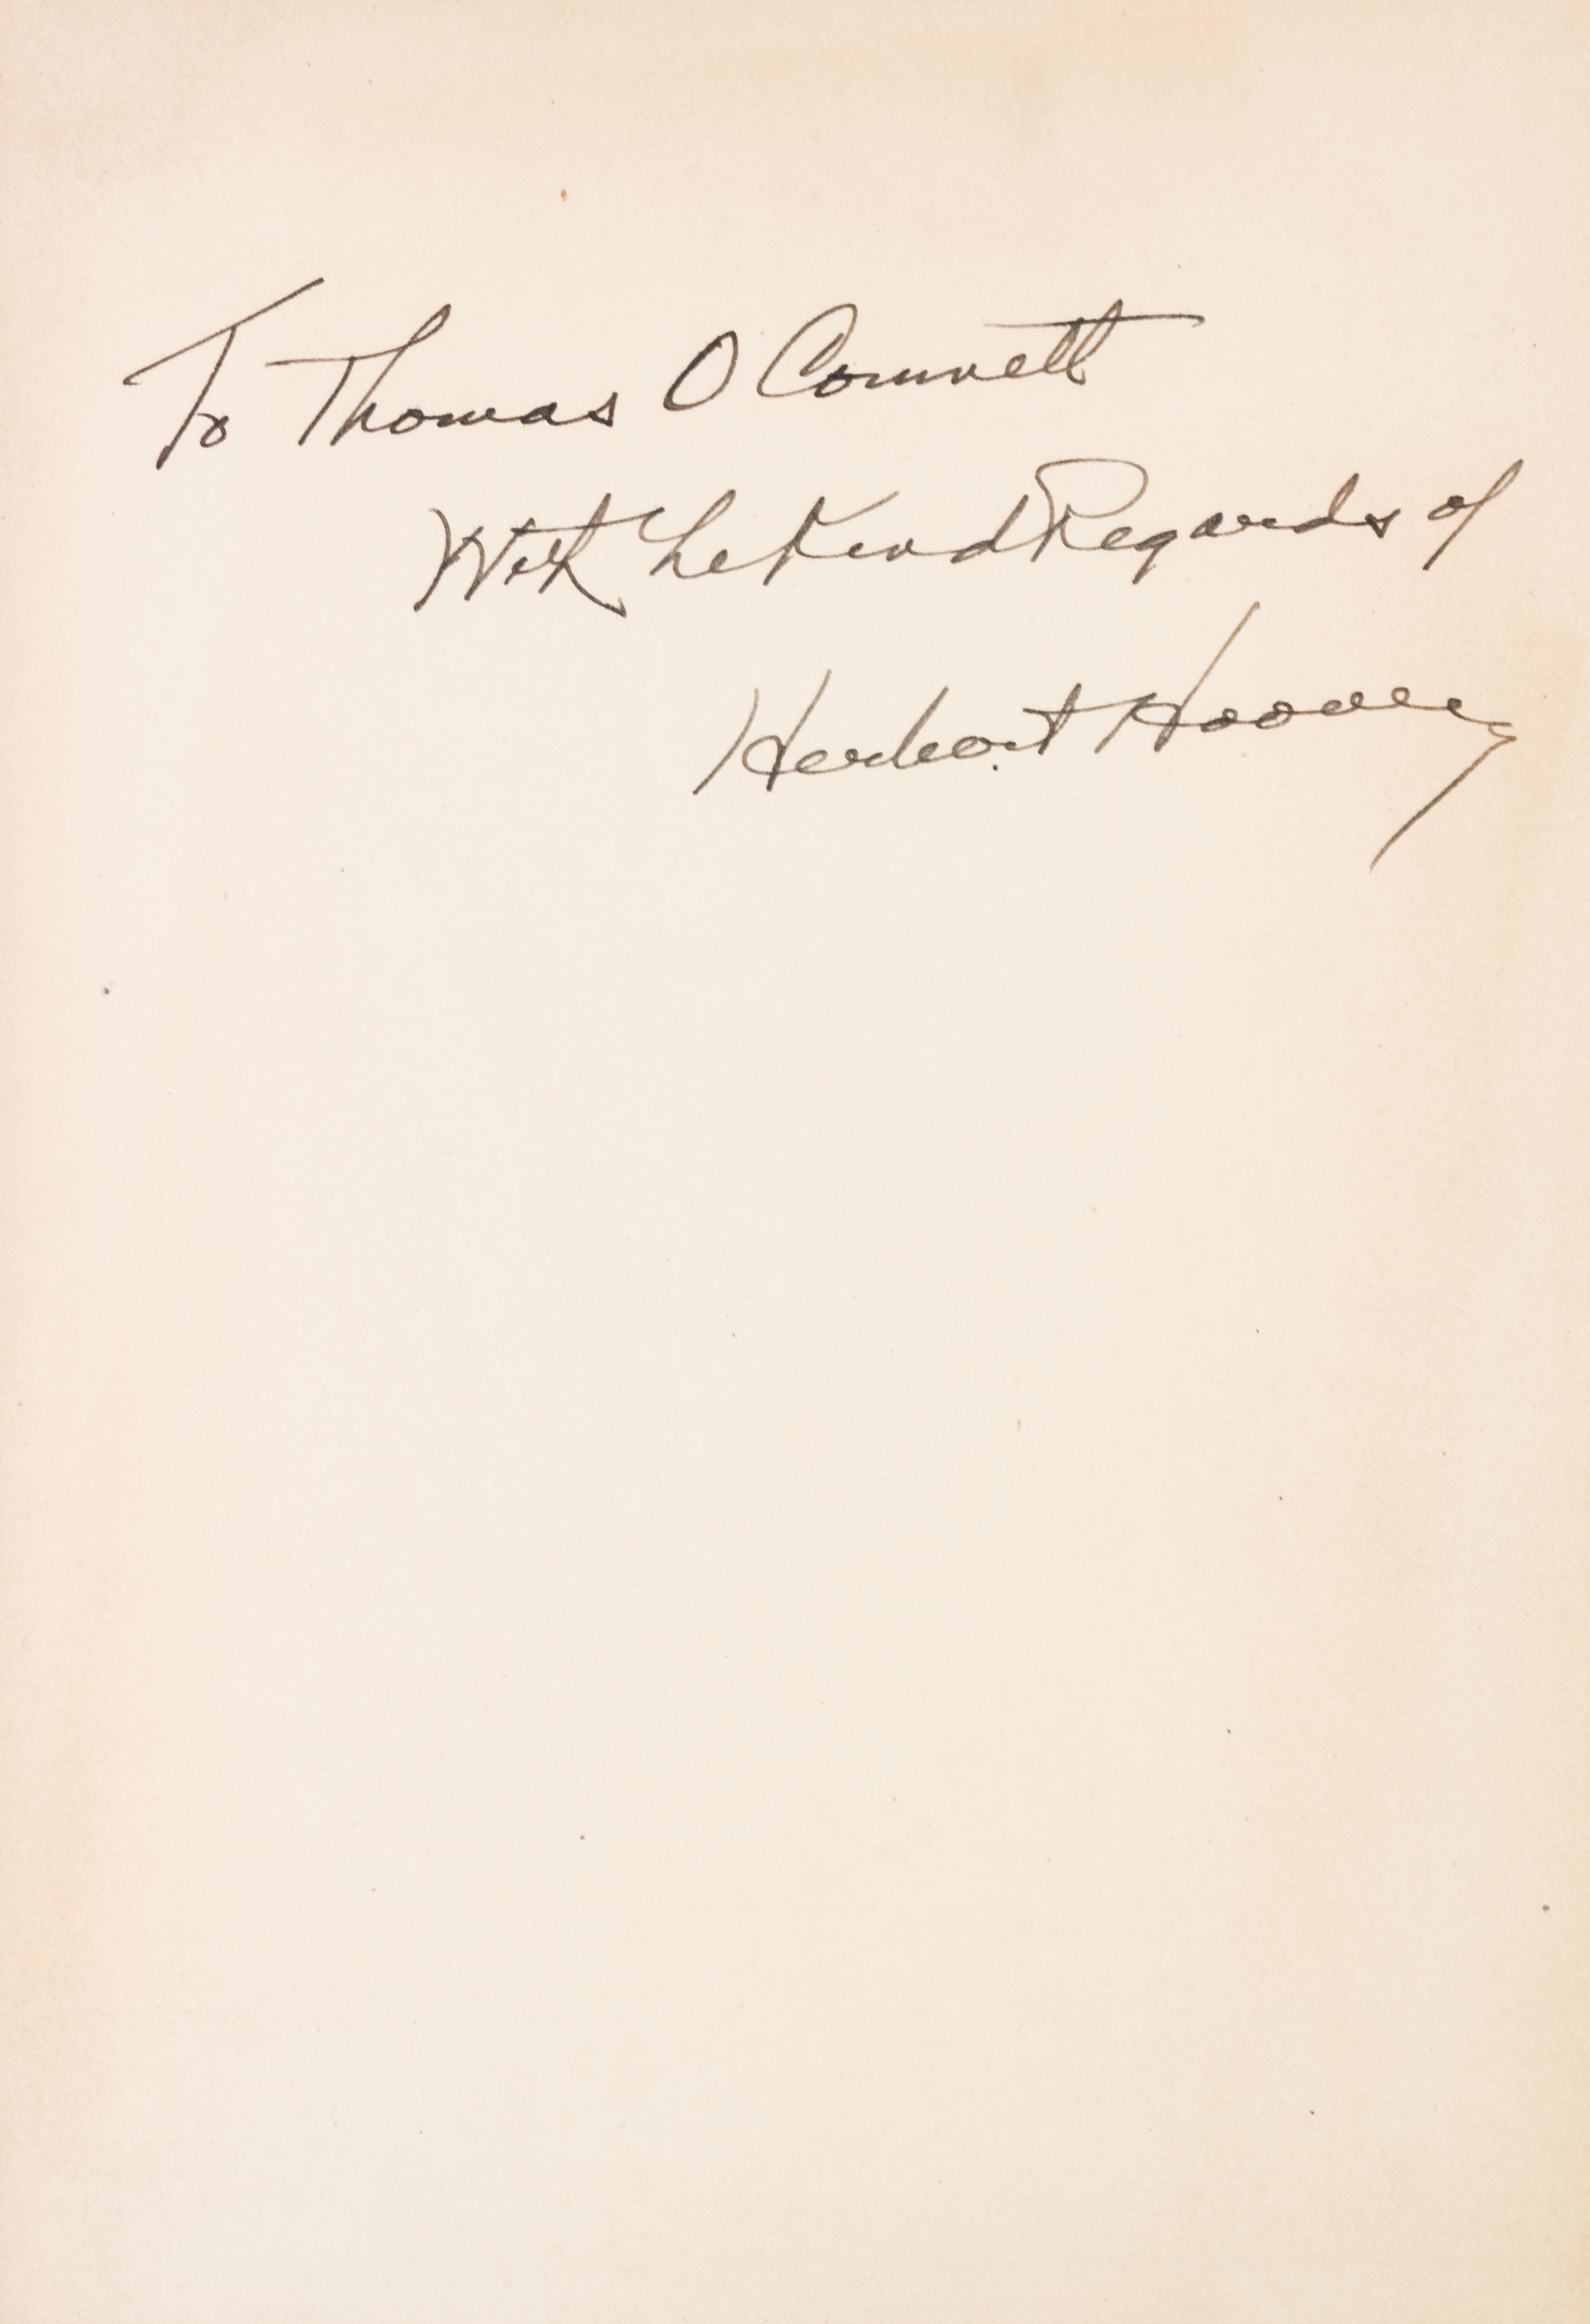 To Thomas O Connett
With the Kind Regards of
Herbert Hoover